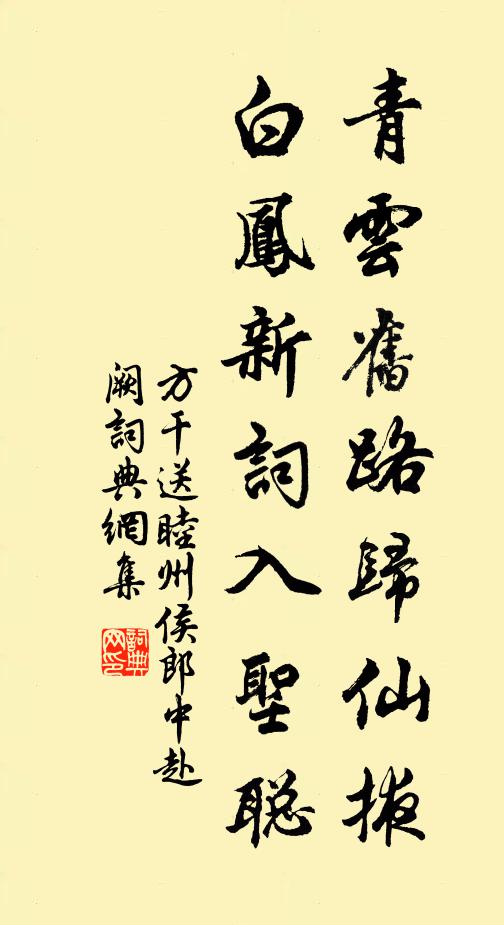 青雲舊路歸仙掖
白鳳新詞入聖聰
方干送睦州侯郎中赴
闕詞典網集
詞典网印